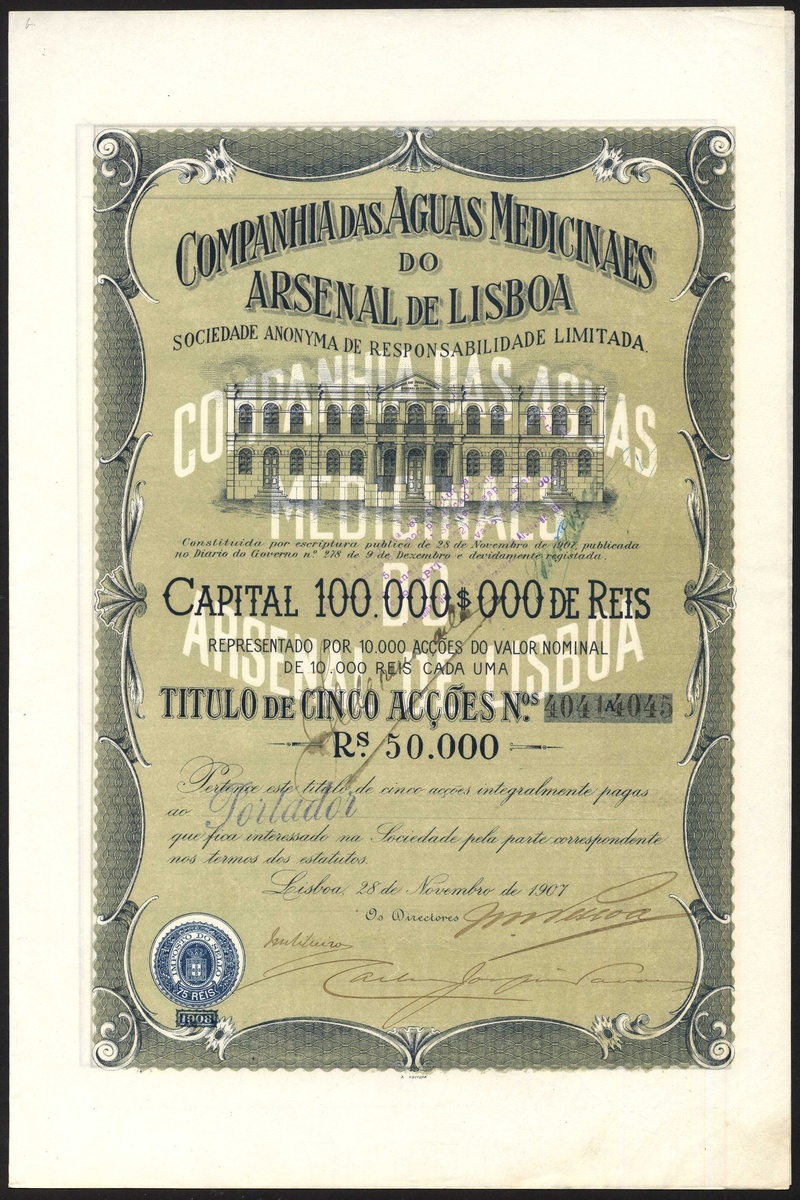 COMPANHIA DAS AGUAS MEDICINAES
DO
ARSENAL DE LISBOA
SOCIEDADE ANONYMA DE RESPONSABILIDADE LIMITADA.
COMPANHIA DAS AGUAS
MEDICINAES
DO
ARSENAL DE LISBOA
Constituida por escriptura publica de 28 de Novembro de 1907, publicada
no Diario do Governo nº 278 de 9 de Dezembro e devidamente registada.
CAPITAL 100.000$000 DE REIS
REPRESENTADO POR 10.000 ACÇÕES DO VALOR NOMINAL
DE 10.000 REIS CADA UMA
TITULO DE CINCO ACÇÕES Nos 4041 A 4045
Rs 50.000
Pertence este titulo de cinco acções integralmente pagas
ao Portador
que fica interessado na Sociedade pela parte correspondente
nos termos dos estatutos.
Lisboa, 28 de Novembro de 1907
Os Directores
IMPOSTO DO SELLO
75 REIS
1908